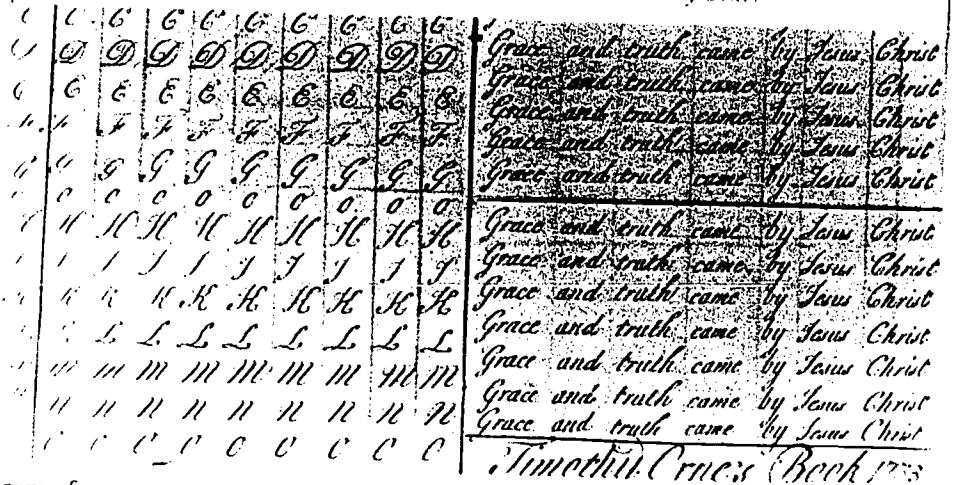 C C C C C C C C
D D D D D D D D D
E E E E E E E E
F F F F F F F F F
G G G G G G G G G
o o o o o o
H H H H H H H H H
I I I I I I I I
K K K K K K K K K
L L L L L L L L
m m m m m m m m m
n n n n n n n n n
Grace and truth came by Jesus Christ
Grace and truth came by Jesus Christ
Grace and truth came by Jesus Christ
Grace and truth came by Jesus Christ
Grace and truth came by Jesus Christ
Grace and truth came by Jesus Christ
Grace and truth came by Jesus Christ
Grace and truth came by Jesus Christ
Grace and truth came by Jesus Christ
Grace and truth came by Jesus Christ
Grace and truth came by Jesus Christ
Grace and truth came by Jesus Christ
Timothy Orne's Book